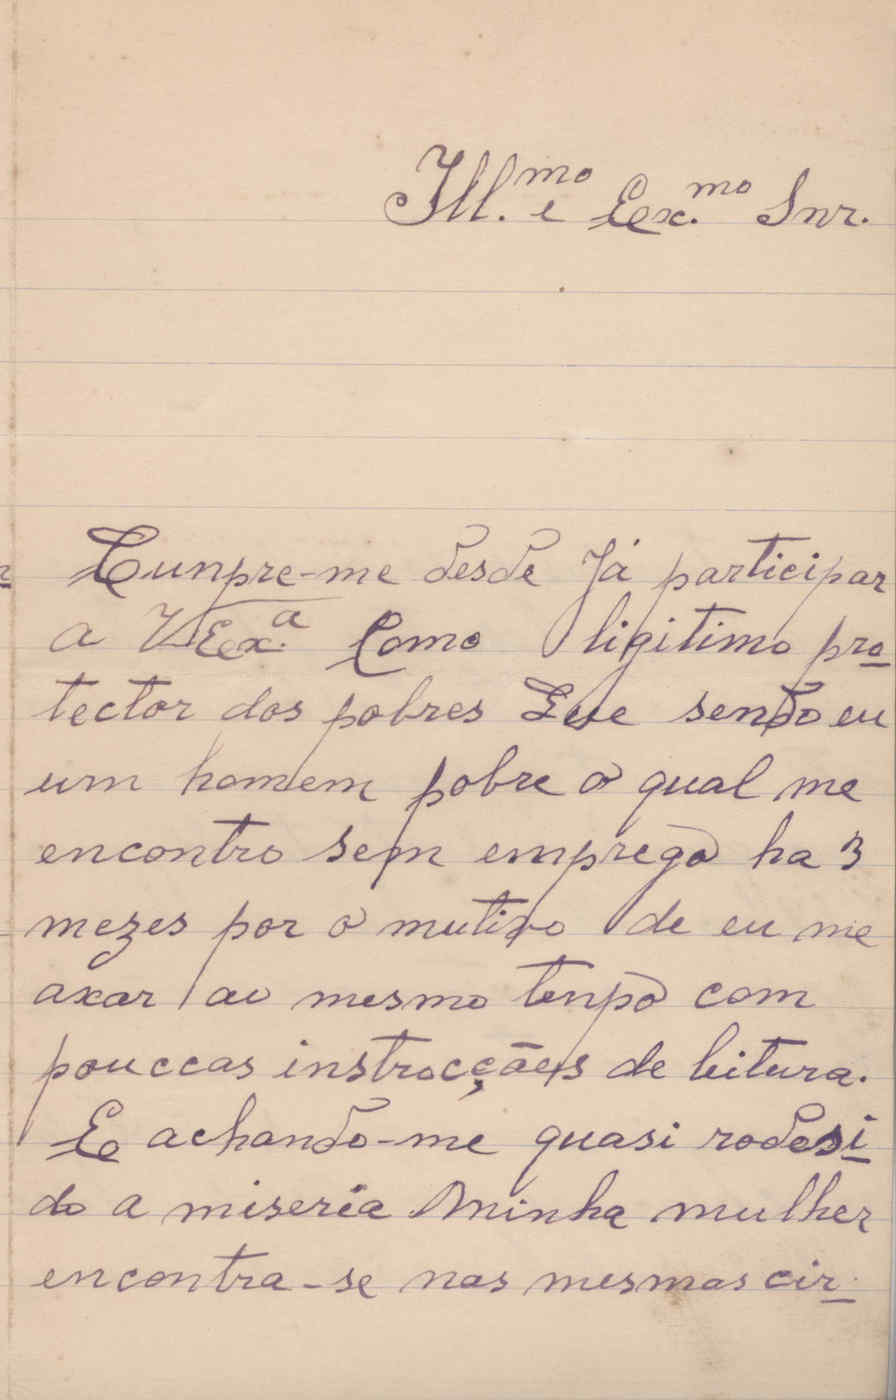 Ill.mo e Ex.mo Snr.
Cunpre-me desde Já participar
a V Ex.a Como ligitimo pro
tector dos pobres Que sendo eu
um homem pobre o qual me
encontro sem emprego ha 3
mezes por o mutivo de eu me
axar ao mesmo tenpo com
pouccas instrocções de leitura.
E achando-me quasi rodesi
do a miseria Minha mulher
encontra-se nas mesmas cir